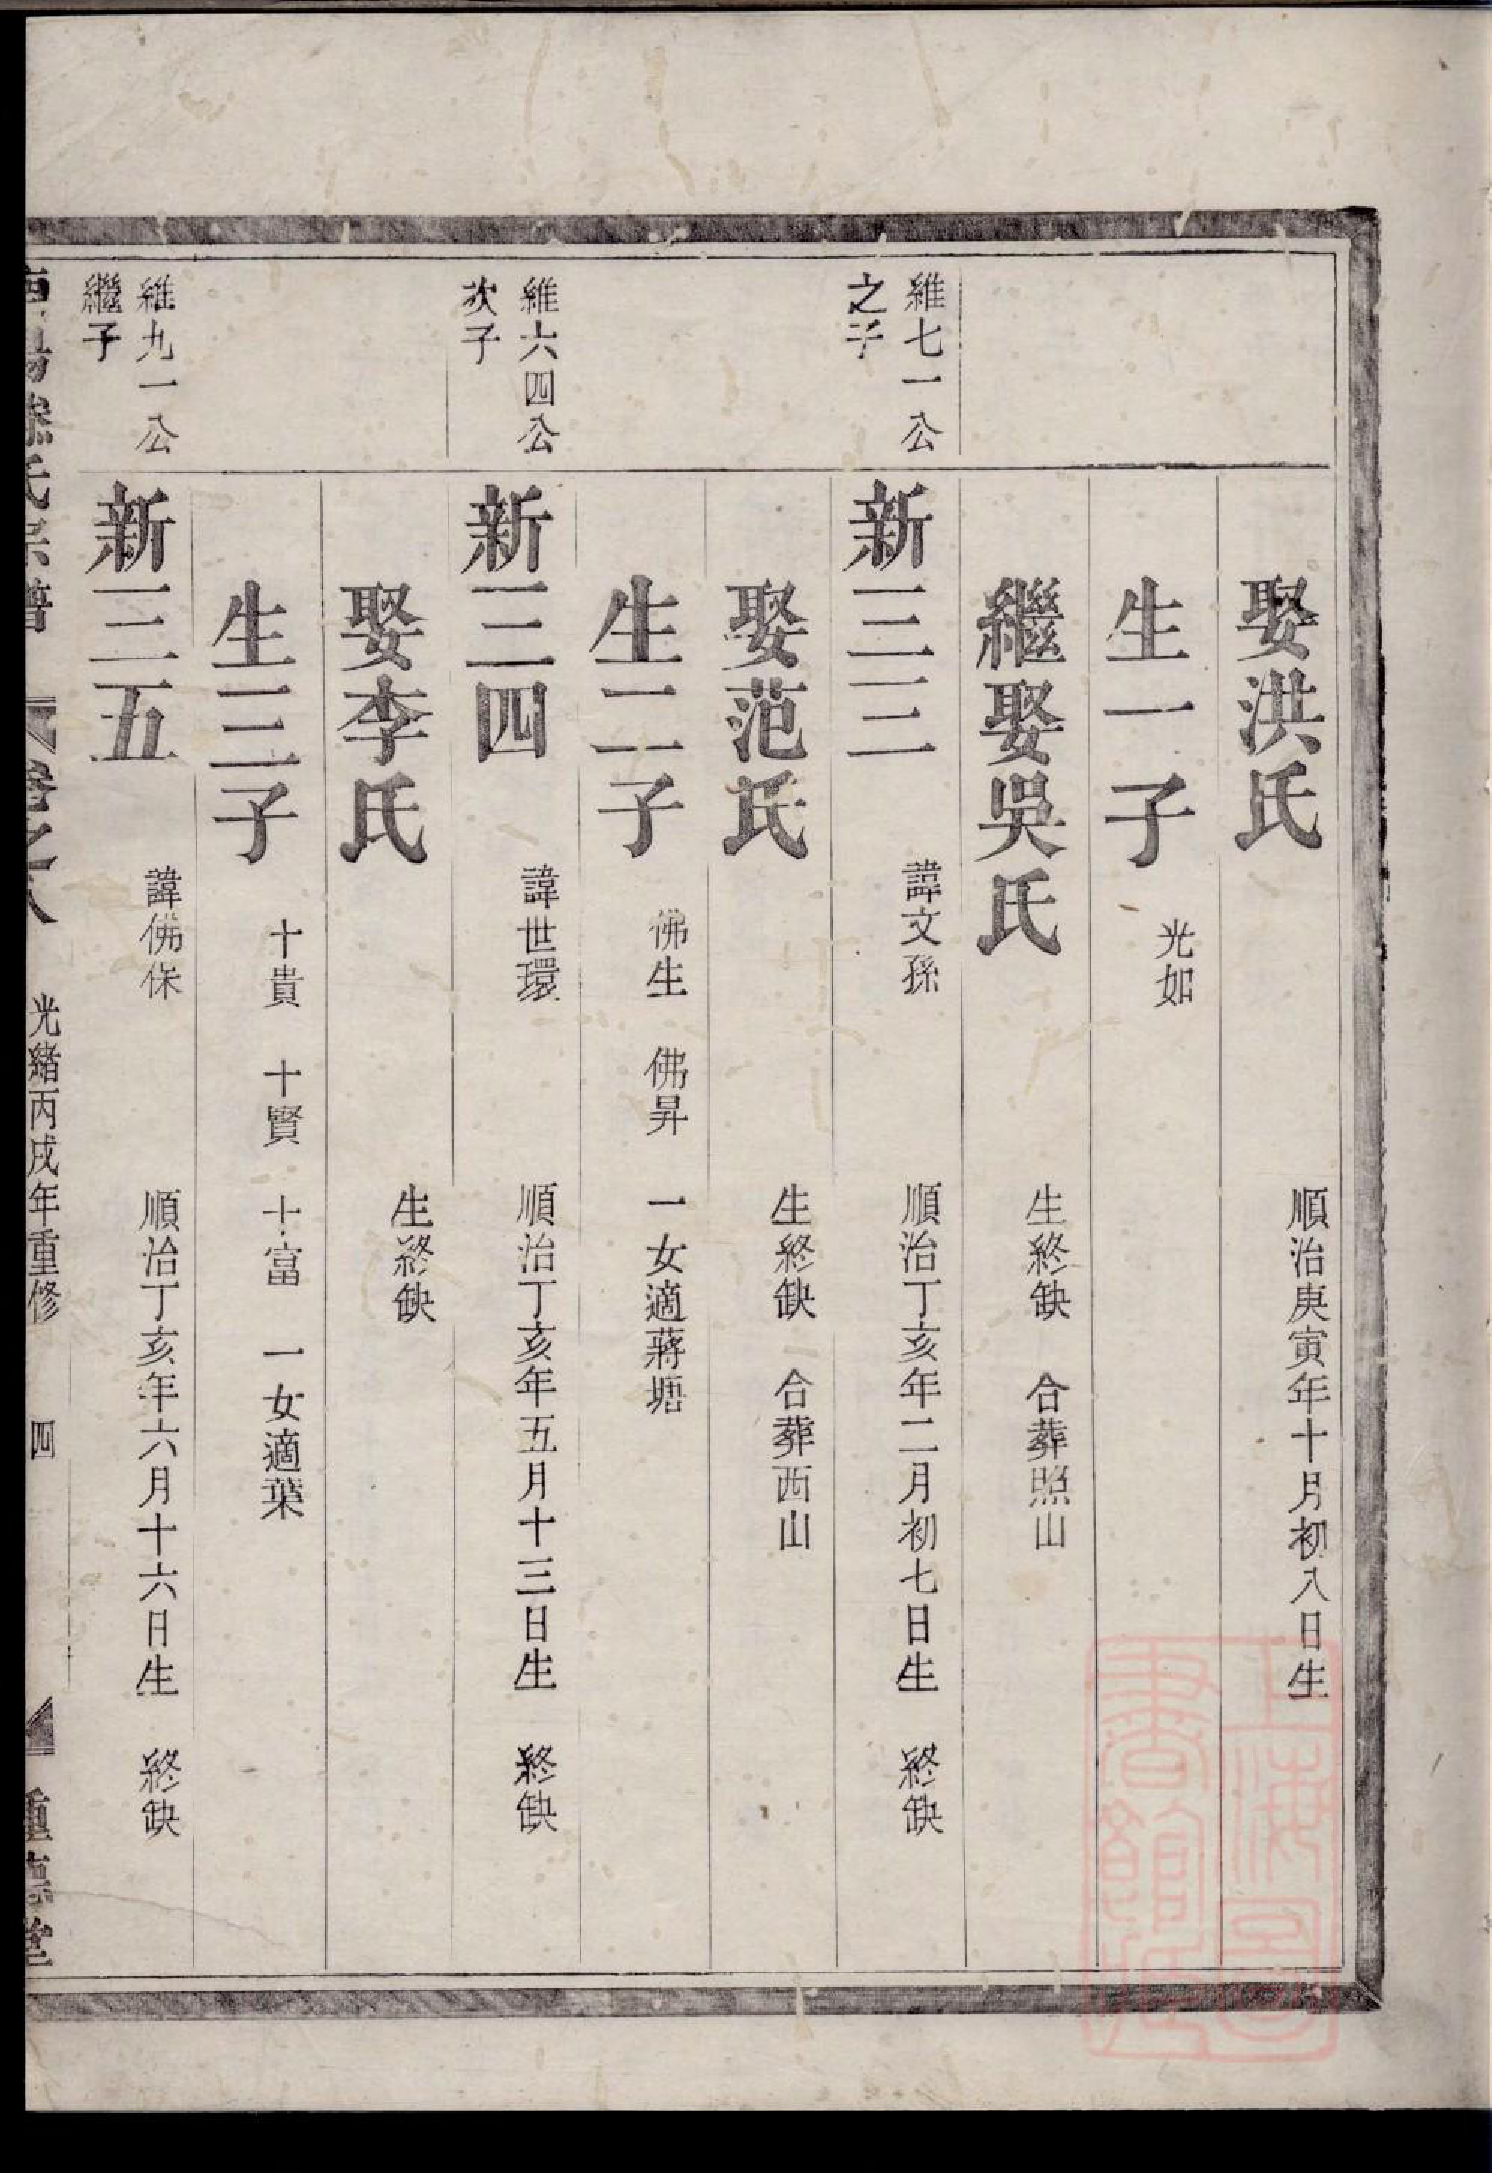 娶洪氏 順治庚寅年十月初八日生
生一子 光如
繼娶吳氏 生終缺 合葬照山
維七一公
之子
新三三 諱文孫 順治丁亥年二月初七日生 終缺
娶范氏 生終缺 合葬西山
生二子 佛生 佛昇 一女適蔣塘
維六四公
次子
新三四 諱世環 順治丁亥年五月十三日生 終缺
娶李氏 生終缺
生三子 十貴 十賢 十富 一女適葉
維九一公
繼子
新三五 諱佛保 順治丁亥年六月十六日生 終缺
氏宗譜 卷之八 光緒丙戌年重修 四 重德堂
上海圖
書館藏